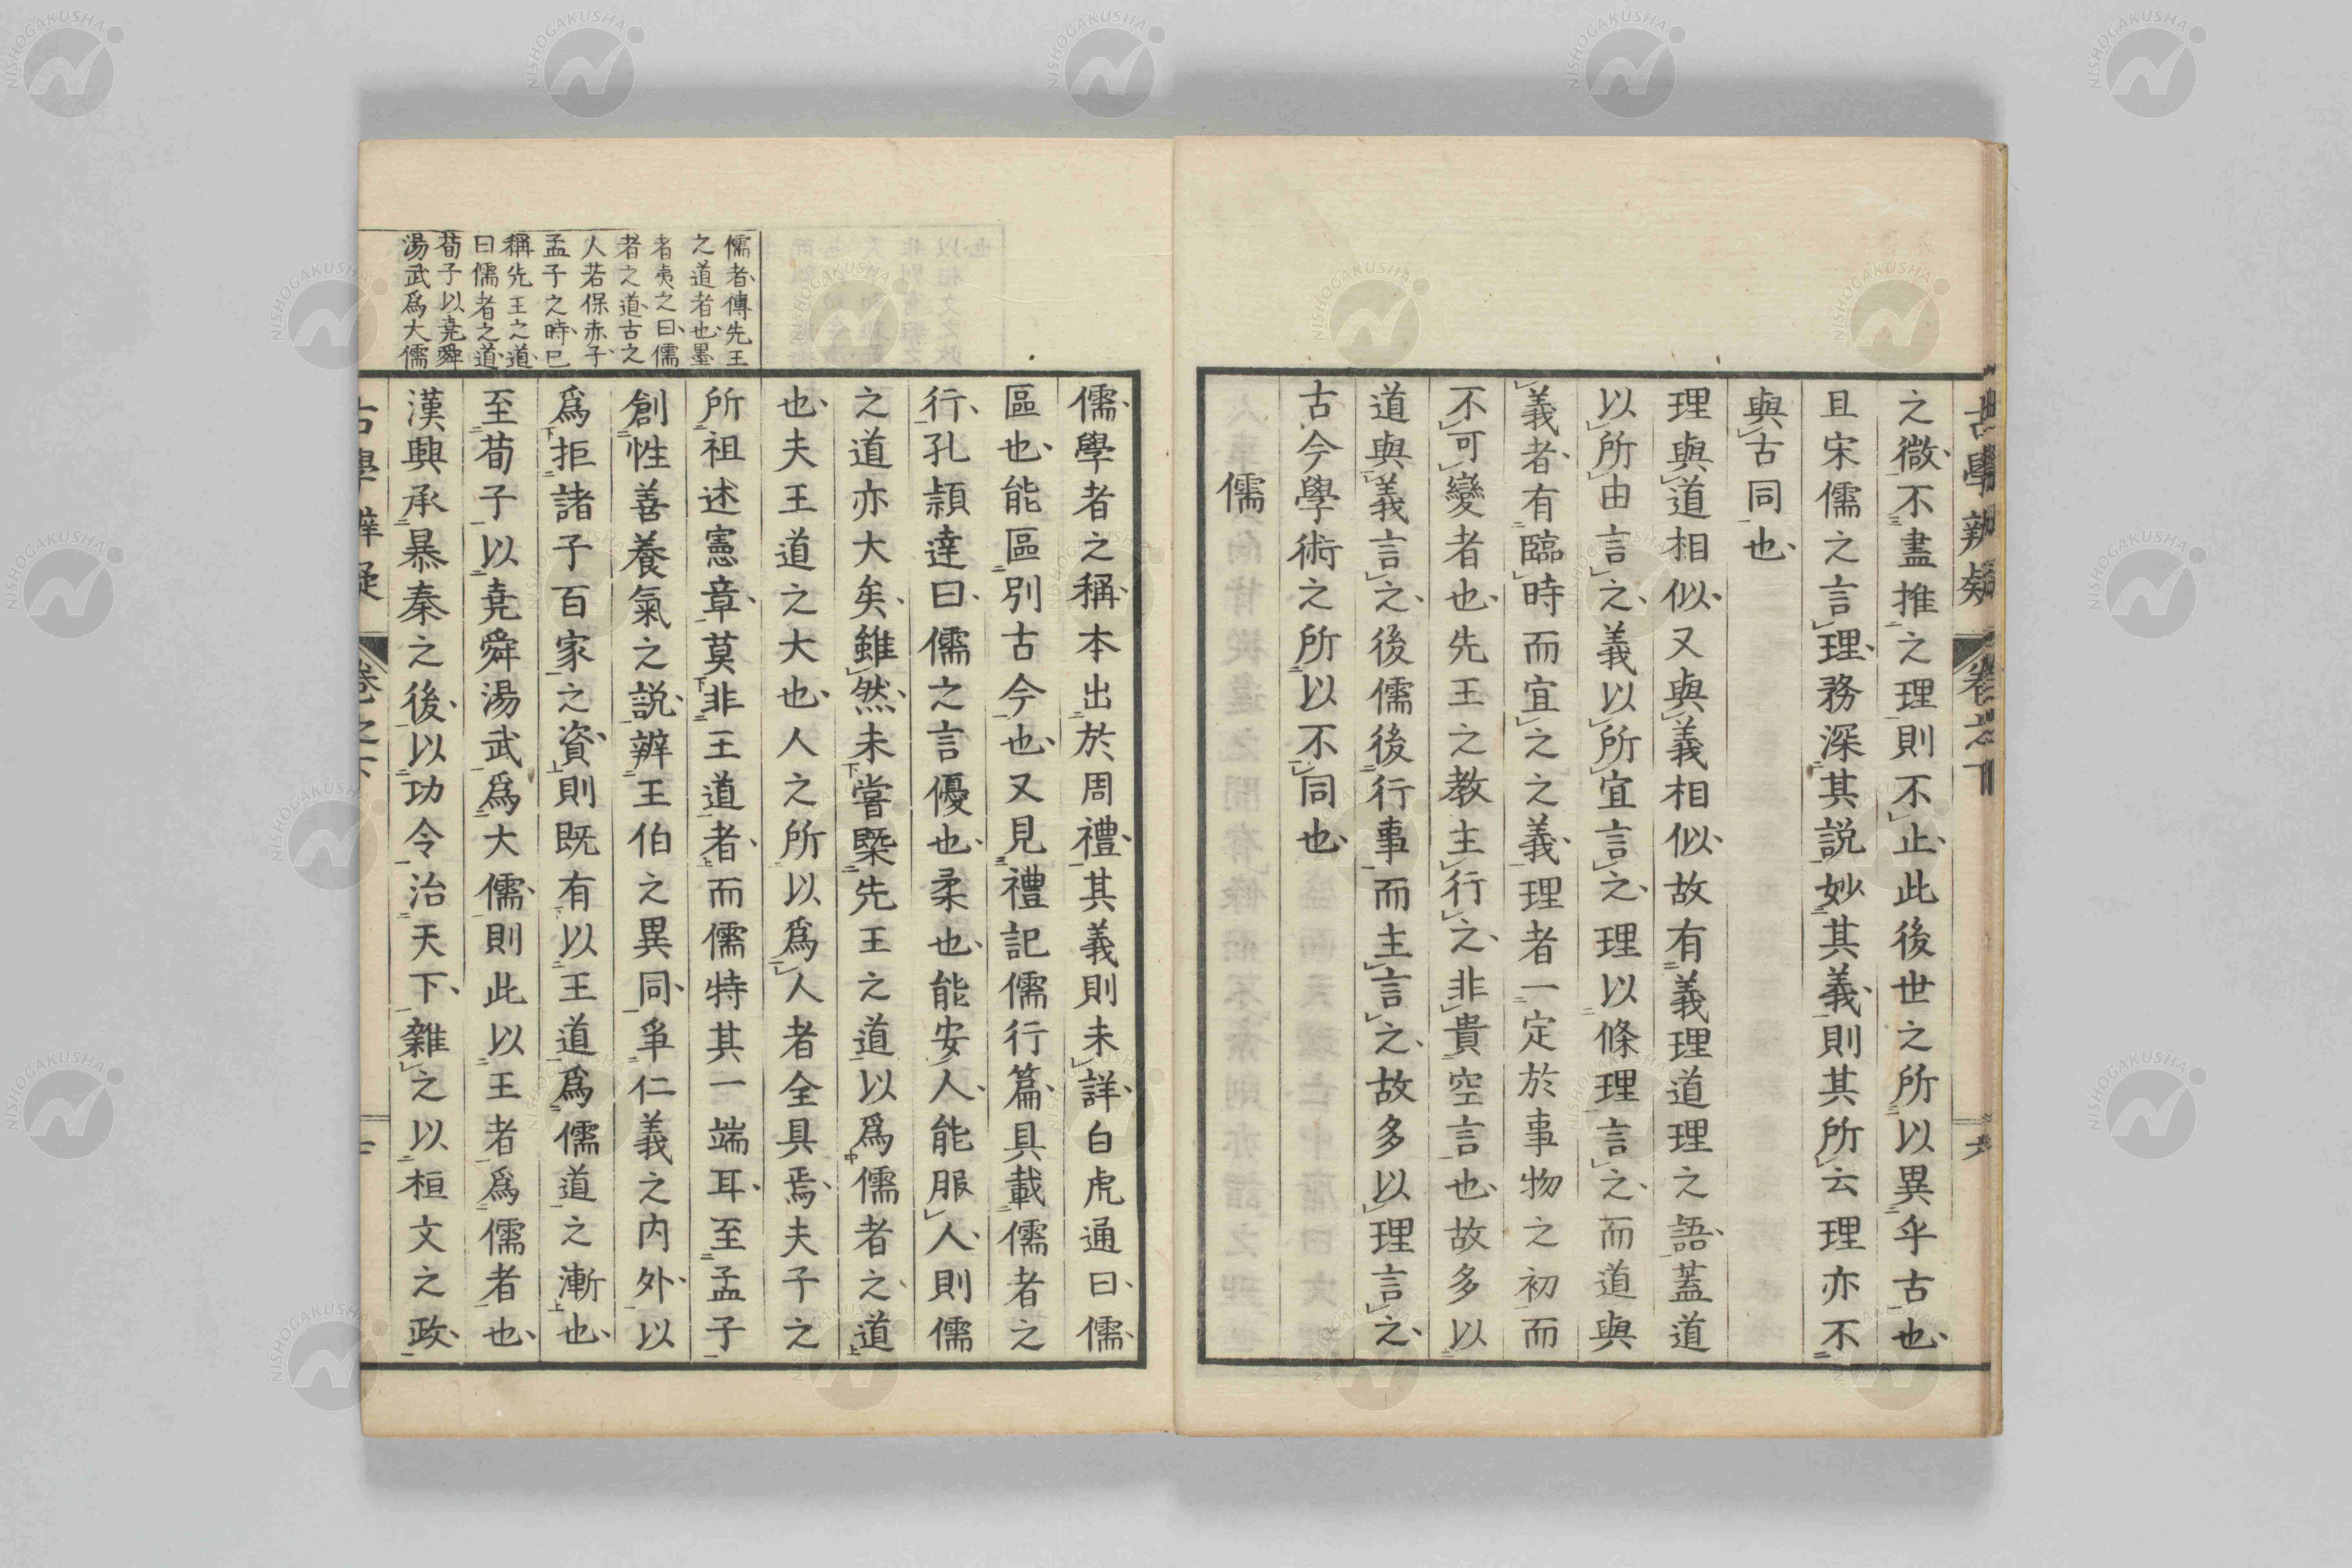 古學辨疑 卷之下
之微不盡推之理則不止此後世之所以異乎古也
且宋儒之言理務深其説妙其義則其所云理亦不
與古同也
理與道相似又與義相似故有義理道理之語蓋道
以所由言之義以所宜言之理以條理言之而道與
義者有臨時而宜之之義理者一定於事物之初而
不可變者也先王之教主行之非貴空言也故多以
道與義言之後儒後行事而主言之故多以理言之
古今學術之所以不同也
儒
儒學者之稱本出於周禮其義則未詳白虎通曰儒
區也能區別古今也又見禮記儒行篇具載儒者之
行孔穎達曰儒之言優也柔也能安人能服人則儒
之道亦大矣雖然未嘗槩先王之道以爲儒者之道
也夫王道之大也人之所以爲人者全具焉夫子之
所祖述憲章莫非王道者而儒特其一端耳至孟子
創性善養氣之説辨王伯之異同爭仁義之内外以
爲拒諸子百家之資則既有以王道爲儒道之漸也
至荀子以堯舜湯武爲大儒則此以王者爲儒者也
漢興承暴秦之後以功令治天下雜之以桓文之政
儒者傳先王
之道者也墨
者夷之曰儒
者之道古之
人若保赤子
孟子之時已
稱先王之道
曰儒者之道
荀子以堯舜
湯武爲大儒
NISHOGAKUSHA